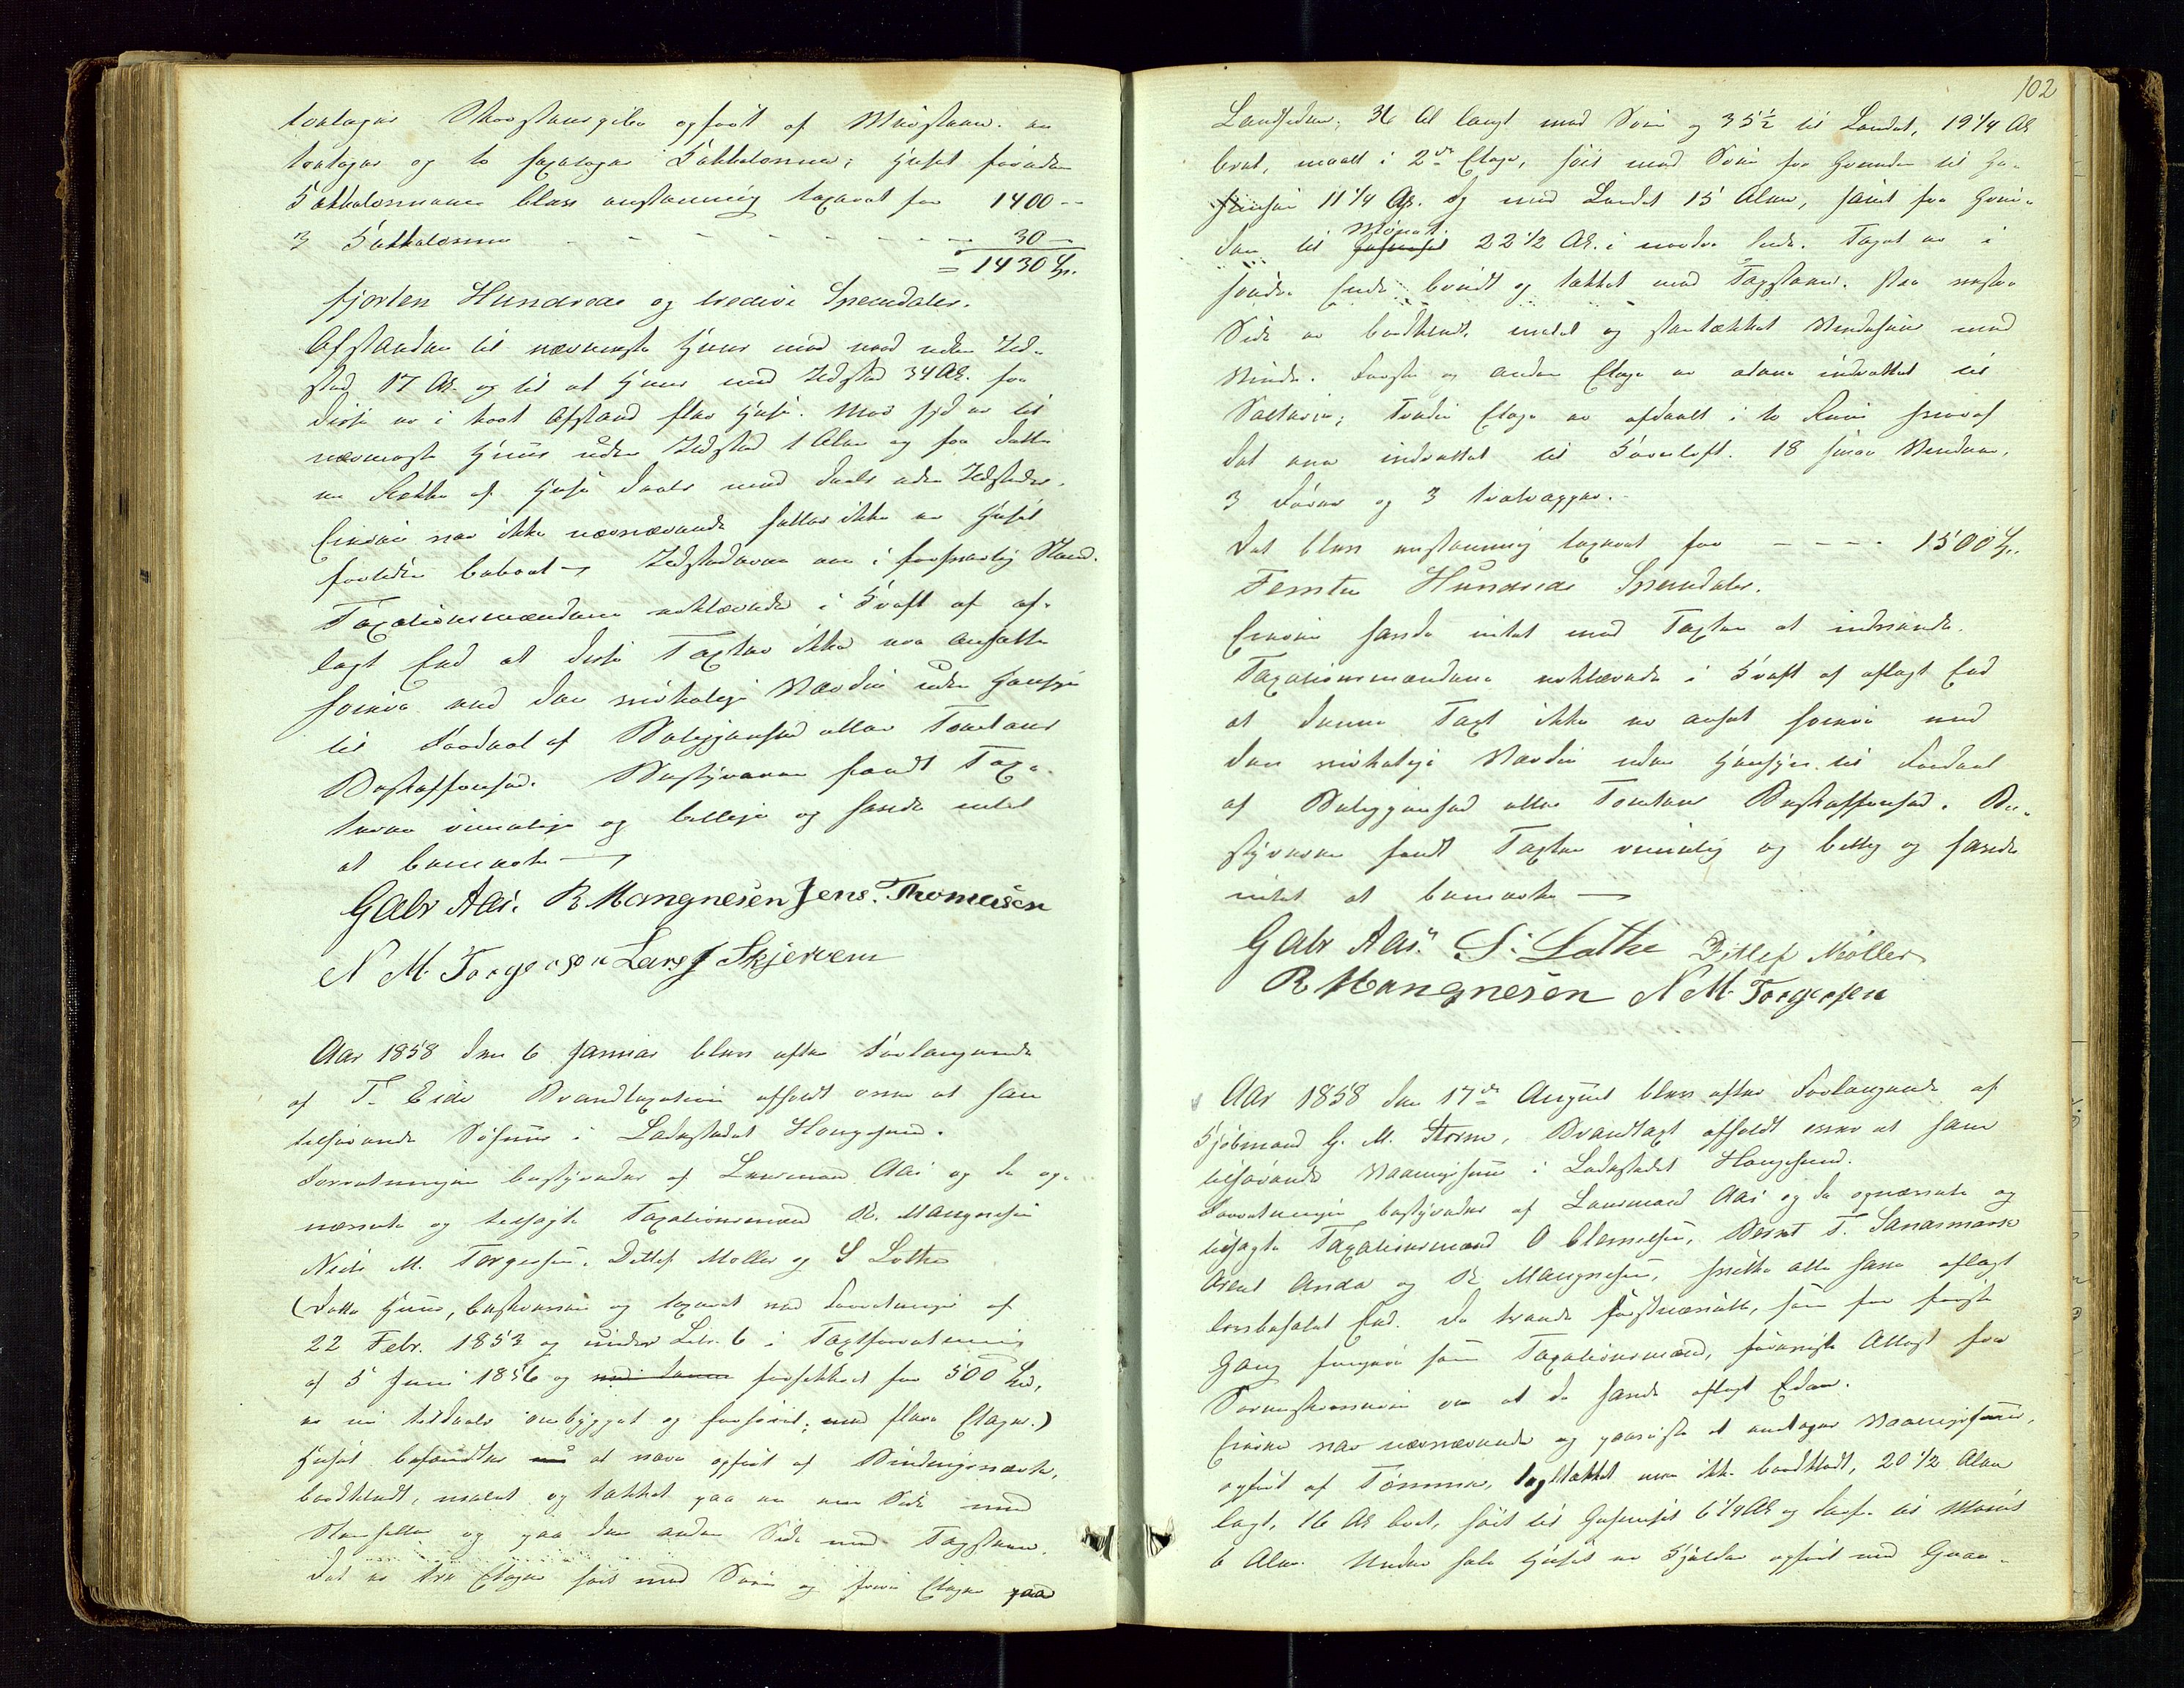 tvetages Skorsteenspibe opført af Muursteen. en
toetages og to  Kakkelovne; Huset foruden
Kakkelovnene blev eenstemmig taxeret for 1400 --
3 Kakkelovne - - - - - - - - 30 -
= 1430 Sp.
fjorten Hundrede og tredive Speciedaler.
Afstanden til nærmeste Huus mod nord uden Ild-
sted 17 Al. og til et Huus med Ildsted 34 Al. fra
disse er i kort Afstand flere Huse. Mod syd er til
nærmeste Huus uden Ildsted 1 Alen og fra dette
en Række af Huse deels med deels uden Ildsteder.
Eieren var ikke nærværende heller ikke er Huset
forliden beboet - Ildstederne ere i forsvarlig Stand.
Taxationsmændene erklærede i Kraft af af-
lagt Eed at disse Taxter ikke ere ansatte
høiere end den virkelige Værdie uden Hensyn
til Fordeel af Beliggenhed eller Tomtens
Beskaffenhed. Bestyreren fandt Tax-
terne rimelige og billige og havde intet
at bemærke -
Gabr Aas. R Mangnesen Jens. Thomasen
N M. Torgersen Lars J Skjervem
Aar 1858 den 6 Januar blev efter Forlangende
af T. Eide Brandtaxation afholdt over et ham
tilhørende Søhuus i Ladestedet Haugesund.
Forretningen bestyredes af Lensmand Aas og de op-
nævnte og tilsagte Taxationsmænd R. Mangnesen
Niels M. Torgersen, Ditlef Møller og S Lothe
(Dette Huus, beskrevven og taxeret ved Forretninger af
22 Febr. 1853 og under Litr. 6 i Taxtforretning
af 5 Juni 1856 og forsikkret for 500 Spd,
er nu tildeels ombygget og forhøiet; med flere Etager.)
Huset befandtes at være opført af Bindingsverk,
bordklædt, malet og tækket paa en Side med
Steenheller og paa den anden Side med Tagsteen.
Det er tre Etager høit med Søen og  Etager paa
102
Landsiden; 36 Al langt mod Søen og 35½ til Landet, 19 1/4 Al.
bredt, maalt i 2den Etage, høit mod Søen fra Grunden til Ge-
simsen 11 1/4 Al. og mod Landet 15 Alen, samt fra Grun-
den til Mønet. 22 1/2 Al. i nordre Ende. Taget er i
søndre Ende brudt og tækket med Tagsteen. Paa vestre
Side er bordklædt, malet og steentækket Vindehuus med
Vinde. Første og anden Etage er alene indrettet til
Salteri; Tredie Etage er afdeelt i to Rum hvoraf
det ene indrettet til Kornloft. 18 smaae Vinduer,
3 Dører og 3 tvetrapper. -
Det blev eenstemmig taxeret for - - - - 1500 Sp.
Femten Hundrede Speciedaler.
Eieren havde intet mod Taxten at indvende.
Taxationsmændene erklærede i Kraft af aflagt Eed
at denne Taxt ikke er ansat høiere end
den virkelige Værdie uden Hensyn til Fordeel
af Beliggenhed eller Tomtens Beskaffenhed. Be-
styreren fandt Taxten rimelig og billig og havde
intet at bemærke -
Gabr Aas. S. Lothe Ditlef Møller
R Mangnesen N M. Torgersen
Aar 1858 den 17de August blev efter Forlangende af
Kjøbmand G. M. Storm, Brandtaxt afholdt over et ham
tilhørende Vaaningshuus i Ladestedet Haugesund.
Forretningen bestyredes af Lensmand Aas og de opnævnte og
tilsagte Taxationsmænd O Clemetsen, Bernt T.
 Anda og R Mangnesen, hvilke alle have aflagt
lovbefalet Eed. De tvende førstnævnte, som for første
Gang fungere som Taxationsmænd, foreviste Attest fra
Sorenskriveren om at de havde aflagt Eden.
Eieren var nærværende og paaviste et eenetages Vaaningshuus,
opført af Tømmer, tagtækket men ikke bordklædt, 20 1/2 Alen
langt, 16 Al bredt, høit til Gesimset 6 1/4 Al og derfra til Mønet
6 Alen. Under hele Huset er Kjelder opført med Graa-